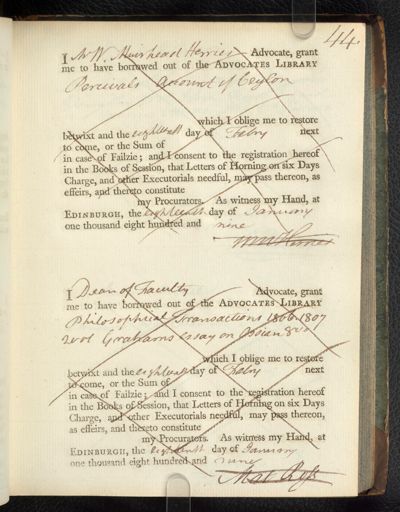 44.
I Mr W. Muirhead Herries Advocate, grant
me to have borrowed out of the ADVOCATES LIBRARY
Percivals Account of Ceylon
which I oblige me to restore
betwixt and the eighteenth day of Febry next
to come, or the Sum of
in case of Failzie; and I consent to the registration hereof
in the Books of Session, that Letters of Horning on six Days
Charge, and other Executorials needful, may pass thereon, as
effeirs, and thereto constitute
my Procurators. As witness my Hand, at
EDINBURGH, the eighteenth day of January
one thousand eight hundred and nine
I Dean of Faculty Advocate, grant
me to have borrowed out of the ADVOCATES LIBRARY
Philosophical Transactions 1806 1807
2 vol Grahams Essay on Ossian 8vo
which I oblige me to restore
betwixt and the eighteenth day of Febry next
to come, or the Sum of
in case of Failzie; and I consent to the registration hereof
in the Books of Session, that Letters of Horning on six Days
Charge, and other Executorials needful, may pass thereon,
as effeirs, and thereto constitute
my Procurators. As witness my Hand, at
EDINBURGH, the eighteenth day of January
one thousand eight hundred and nine
Mat Ross